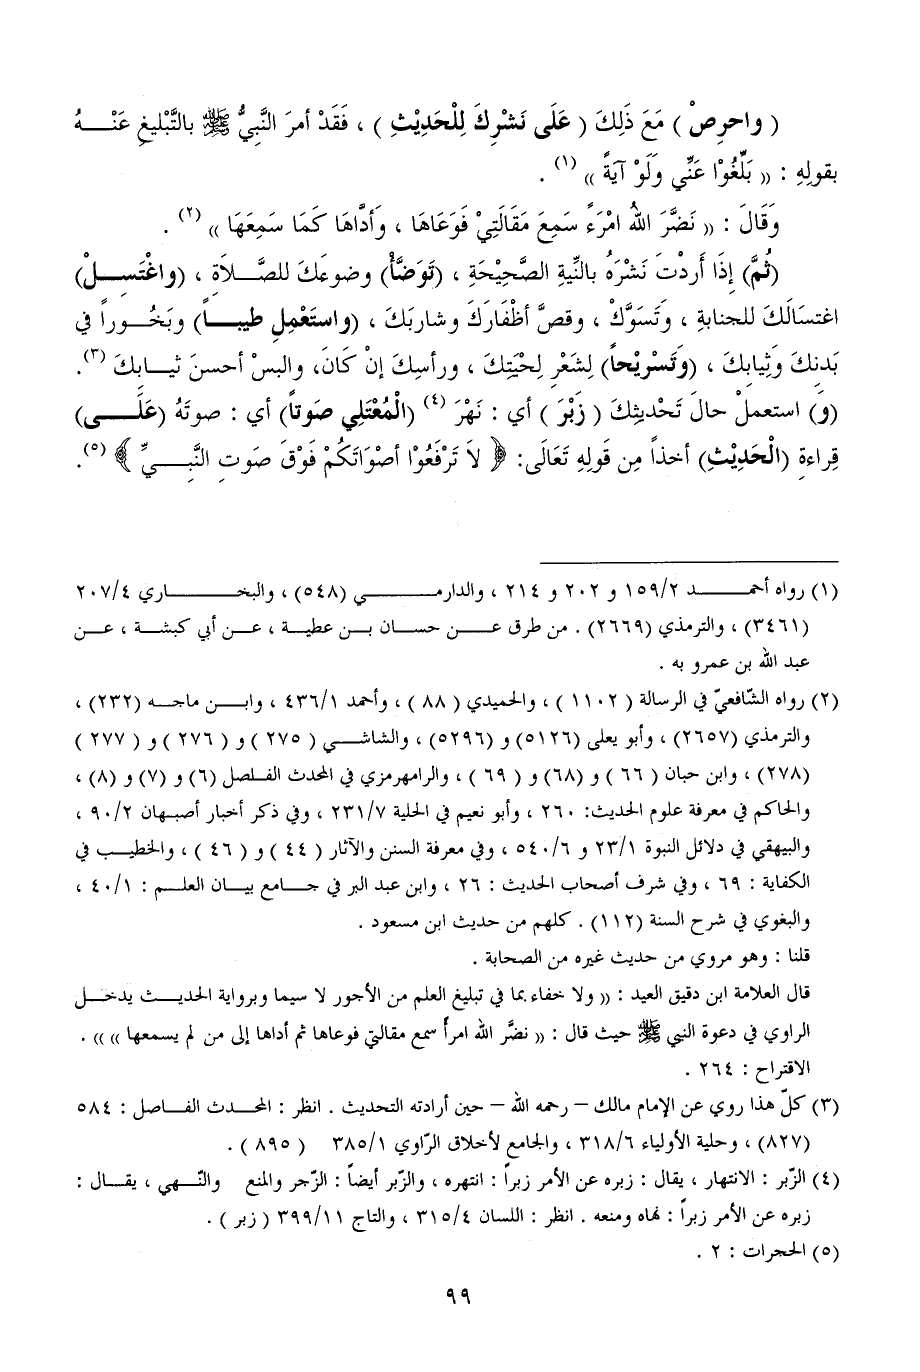 ( واحرِصْ ) مَعَ ذَلِكَ ( عَلَى نَشْرِكَ لِلْحَدِيْثِ ) ، فَقَدْ أمرَ النَّبِيُّ ﷺ بالتَّبْليغِ عَنْـــهُ
بقولِهِ : (( بَلِّغُوْا عَنِّي وَلَوْ آيَةً )) (١) .
وَقَالَ : (( نَضَّرَ اللهُ امْرَءً سَمِعَ مَقَالَتِيْ فَوَعَاهَا ، وَأدَّاهَا كَمَا سَمِعَهَا )) (٢) .
(ثُمَّ) إذَا أَرَدْتَ نَشْرَهُ بالنِّيةِ الصَّحِيْحَةِ ، (تَوَضَّأْ) وضوءَكَ للصَّلاَةِ ، (واغْتَســلْ)
اغتسَالَكَ للجنابةِ ، وتَسَوَّكْ ، وقصَّ أظْفَارَكَ وشاربَكَ ، (واستَعْمِلْ طيبــاً) وبَخُــوراً في
بَدنكَ وَثِيابِكَ ، (وَتَسْرِيْحاً) لِشَعْرِ لِحْيَتِكَ ، ورأسِكَ إنْ كَانَ، والبسْ أحسنَ ثيــابكَ (٣).
(وَ) استعملْ حالَ تَحْديثِكَ ( زَبْرَ ) أي : نَهْرَ (٤) (الْمُعْتَلِي صَوتاً) أي : صوتَهُ (عَلَــى)
قِراءةِ (الْحَدِيْثِ) أخذاً مِن قولِهِ تَعَالَى: ﴿ لاَ تَرْفَعُوْا أصْوَاتَكُمْ فَوْقَ صَوتِ النَّبــيِّ ﴾ (٥).
(١) رواه أحمــــد ١٥٩/٢ و ٢٠٢ و ٢١٤ ، والدارمــــي (٥٤٨) ، والبخــــاري ٢٠٧/٤
(٣٤٦١) ، والترمذي (٢٦٦٩) . من طرق عــن حســان بــن عطيــة ، عــن أبي كبشــة ، عــن
عبد الله بن عمرو به .
(٢) رواه الشّافعيّ في الرسالة ( ١١٠٢ ) ، والحميدي ( ٨٨ ) ، وأحمد ٤٣٦/١ ، وابــن ماجــه (٢٣٢) ،
والترمذي (٢٦٥٧) ، وأبو يعلى (٥١٢٦) و (٥٢٩٦) ، والشاشــي ( ٢٧٥ ) و ( ٢٧٦ ) و ( ٢٧٧ )
(٢٧٨) ، وابن حبان ( ٦٦ ) و (٦٨) و ( ٦٩ ) ، والرامهرمزي في المحدث الفــلصل (٦) و (٧) و (٨) ،
والحاكم في معرفة علوم الحديث: ٢٦٠ ، وأبو نعيم في الحلية ٢٣١/٧ ، وفي ذكر أخبار أصبــهان ٩٠/٢ ،
والبيهقي في دلائل النبوة ٢٣/١ و ٥٤٠/٦ ، وفي معرفة السنن والآثار ( ٤٤ ) و ( ٤٦ ) ، والخطيــب في
الكفاية : ٦٩ ، وفي شرف أصحاب الحديث : ٢٦ ، وابن عبد البر في جــامع بيــان العلــم : ٤٠/١ ،
والبغوي في شرح السنة (١١٢) . كلهم من حديث ابن مسعود .
قلنا : وهو مروي من حديث غيره من الصحابة .
قال العلامة ابن دقيق العيد : (( ولا خفاء بما في تبليغ العلم من الأجور لا سيما وبرواية الحديــث يدخــل
الراوي في دعوة النبي ﷺ حيث قال : (( نضَّر الله امرأً سمع مقالتي فوعاها ثم أداها إلى من لم يسمعها )) )) .
الاقتراح : ٢٦٤ .
(٣) كلّ هذا روي عن الإمام مالك – رحمه الله – حين أرادته التحديث . انظر : المحــدث الفــاصل : ٥٨٤
(٨٢٧) ، وحلية الأولياء ٣١٨/٦ ، والجامع لأخلاق الرّاوي ٣٨٥/١ ( ٨٩٥ ) .
(٤) الزّبر : الانتهار ، يقال : زبره عن الأمر زبراً : انتهره ، والزّبر أيضاً : الزّجر والمنع والنّــهي ، يقــال :
زبره عن الأمر زبراً : نهاه ومنعه . انظر : اللسان ٣١٥/٤ ، والتاج ٣٩٩/١١ ( زبر ) .
(٥) الحجرات : ٢ .
٩٩